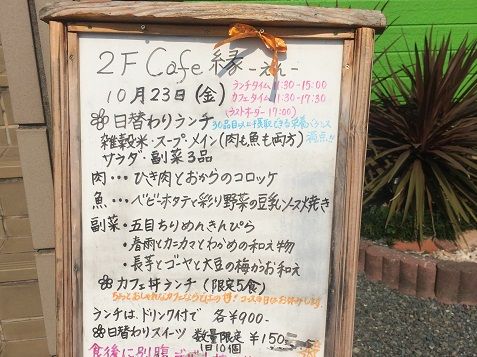 2F Cafe 縁 -えん-
10月23日(金)
ランチタイム 11:30-15:00
カフェタイム 11:30-17:30
(ラストオーダー 17:00)
日替わりランチ
30品目以上摂取できる栄養バランス満点!!
雑穀米・スープ・メイン(肉も魚も両方)
サラダ・副菜3品
肉…ひき肉とおからのコロッケ
魚…ベビーホタテと彩り野菜の豆乳ソース焼き
副菜・五目ちりめんきんぴら
・春雨とカニカマとわかめの和え物
・長芋とゴーヤと大豆の梅かお和え
カフェ丼ランチ(限定5食)
ランチは、ドリンク付で 各¥900-
日替わりスイーツ 数量限定 ¥150-
1日10個
食後に別腹